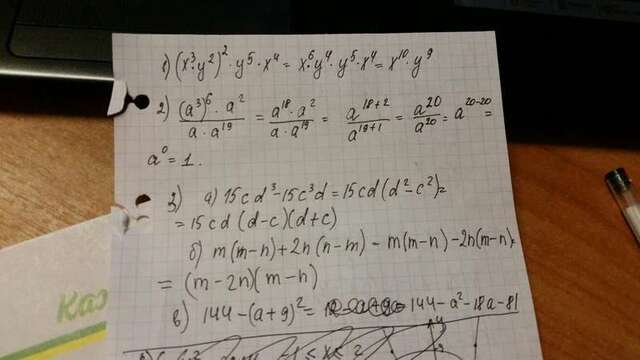 1) (x³·y²)²·y⁵·x⁴ = x⁶·y⁴·y⁵·x⁴ = x¹⁰·y⁹
2) (a³)⁶·a² / a·a¹⁹ = a¹⁸·a² / a·a¹⁹ = a¹⁸⁺² / a¹⁹⁺¹ = a²⁰ / a²⁰ = a²⁰⁻²⁰ =
a⁰ = 1.
3) а) 15cd³-15c³d = 15cd(d²-c²) =
= 15cd (d-c)(d+c)
б) m(m-n)+2n(n-m) - m(m-n)-2n(m-n) =
= (m-2n)(m-n)
в) 144-(a+9)² = 144-a²-18a-81
Каз